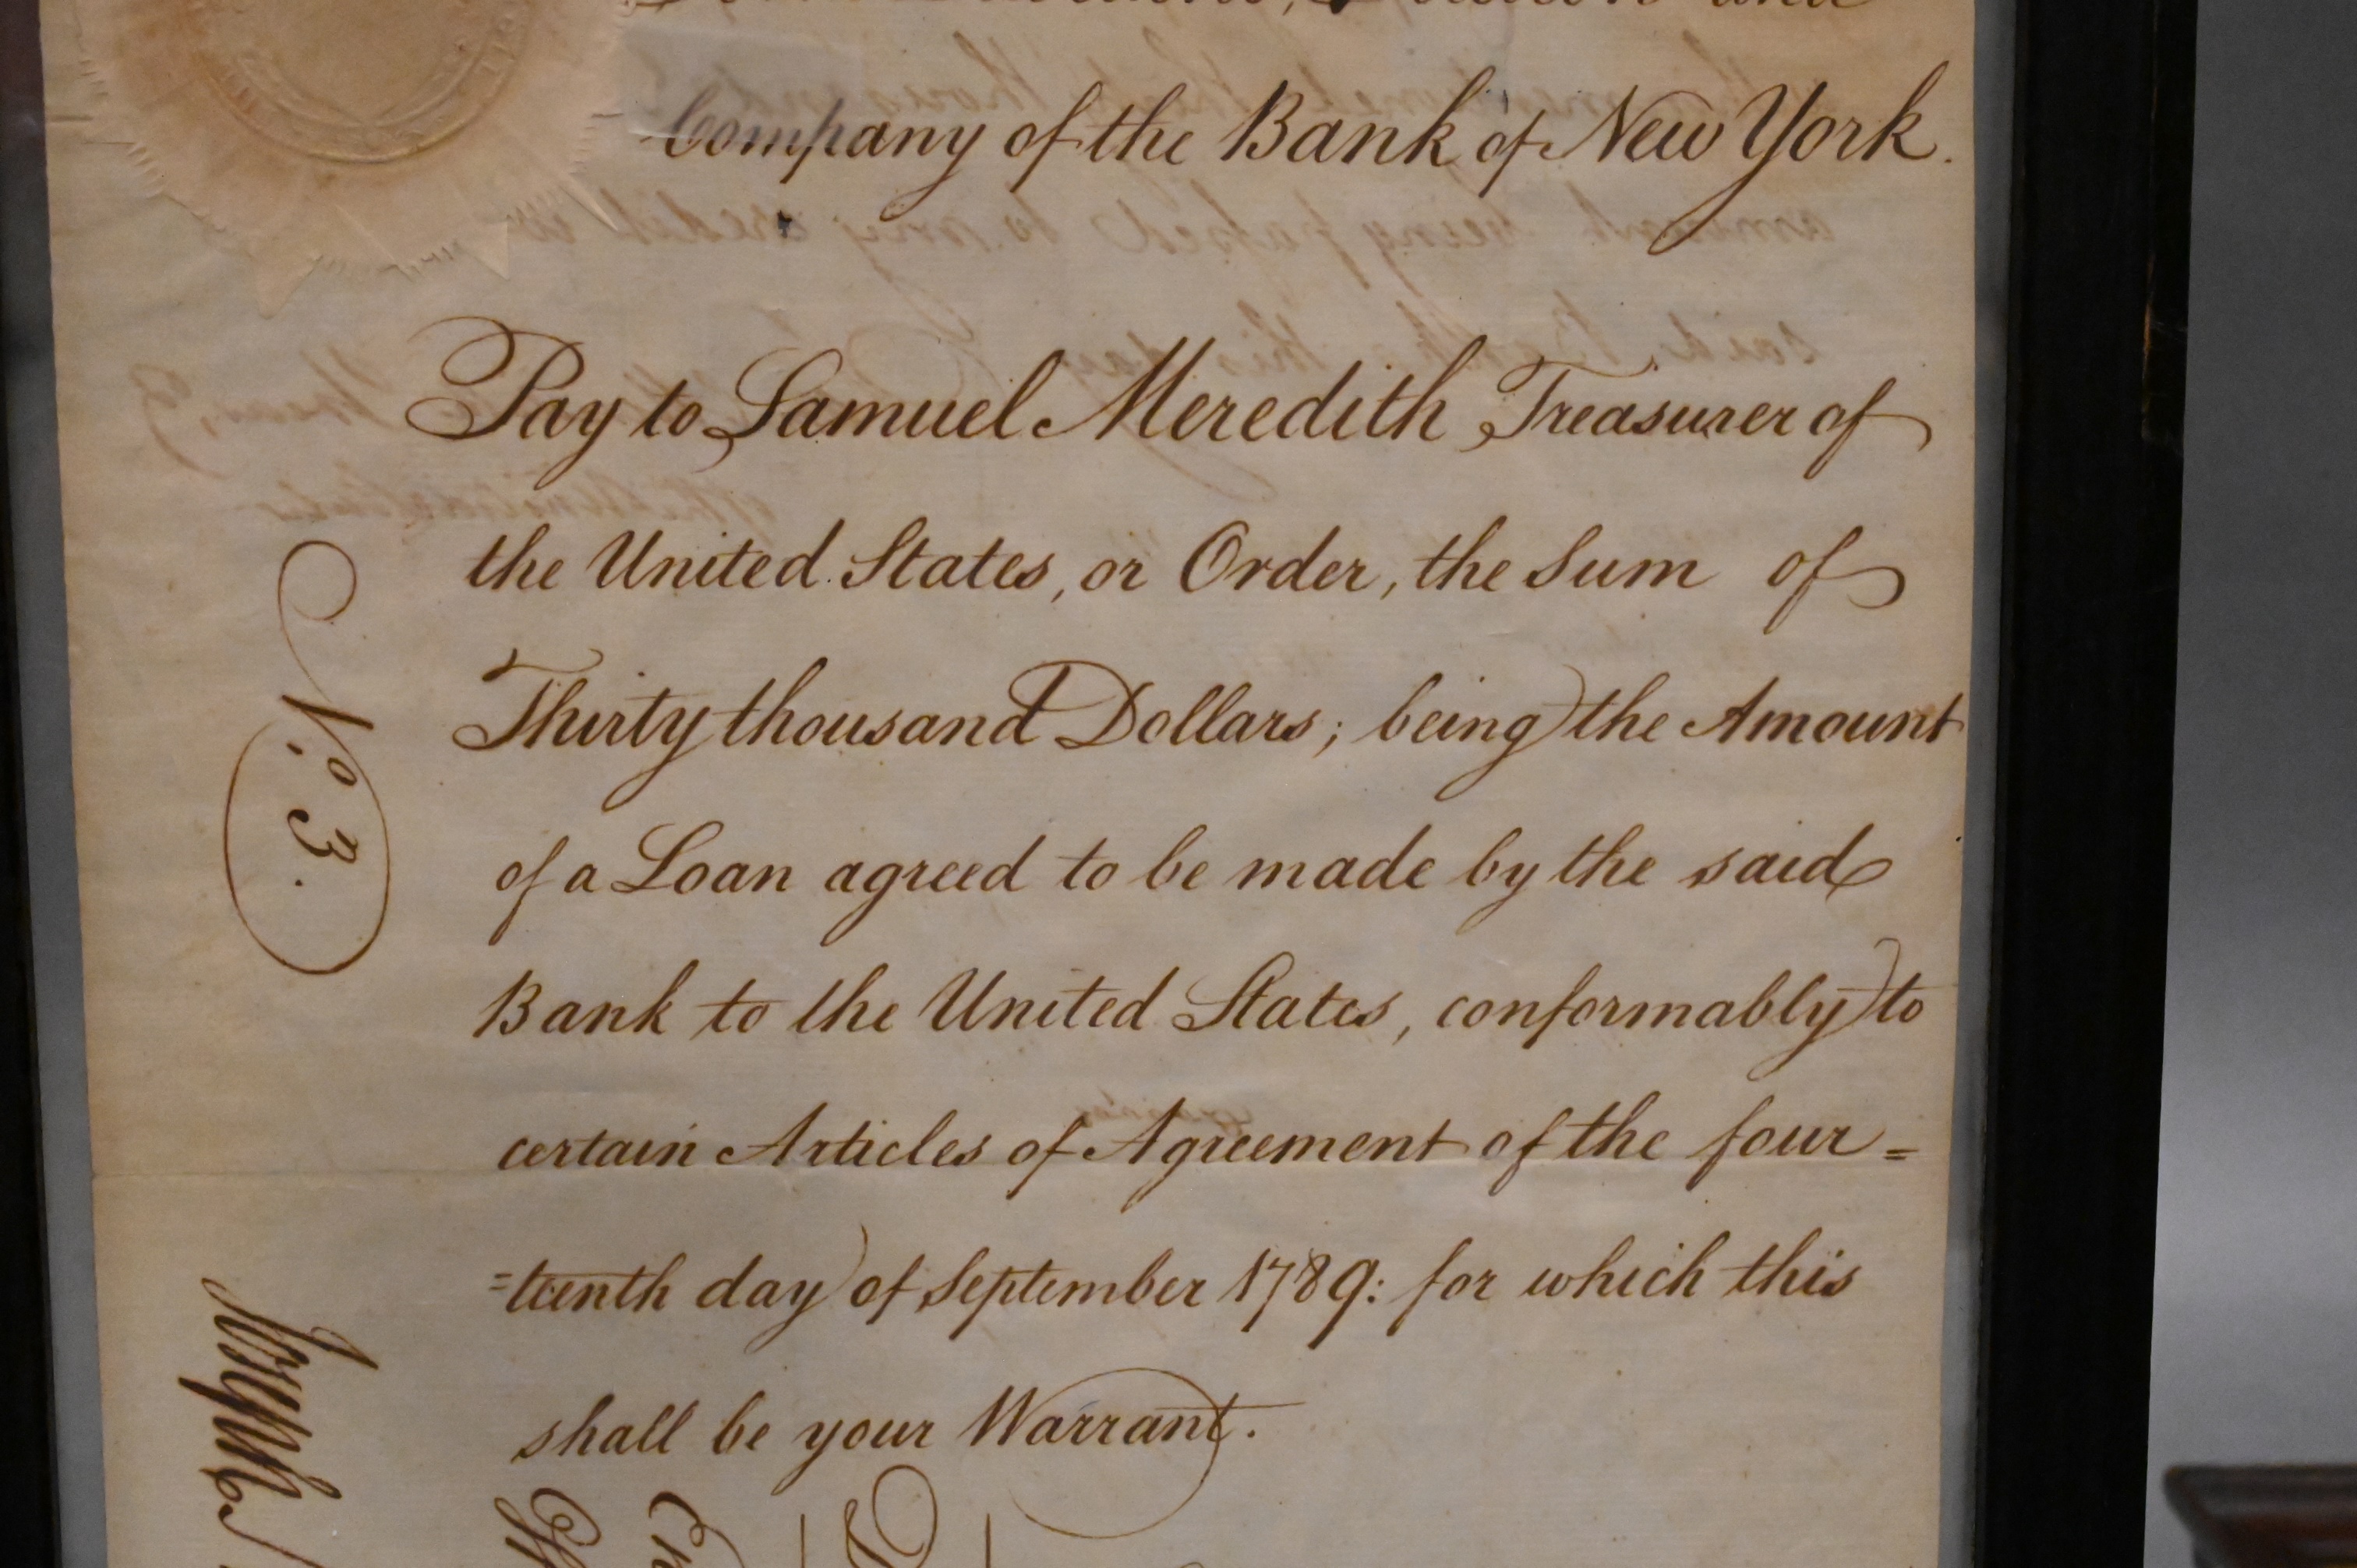 Company of the Bank of New York.
Pay to Samuel Meredith Treasurer of
the United States, or Order, the Sum of
Thirty thousand Dollars; being the Amount
of a Loan agreed to be made by the said
Bank to the United States, conformably to
certain Articles of Agreement of the four=
=teenth day of September 1789: for which this
shall be your Warrant.
No. 3.
Joseph